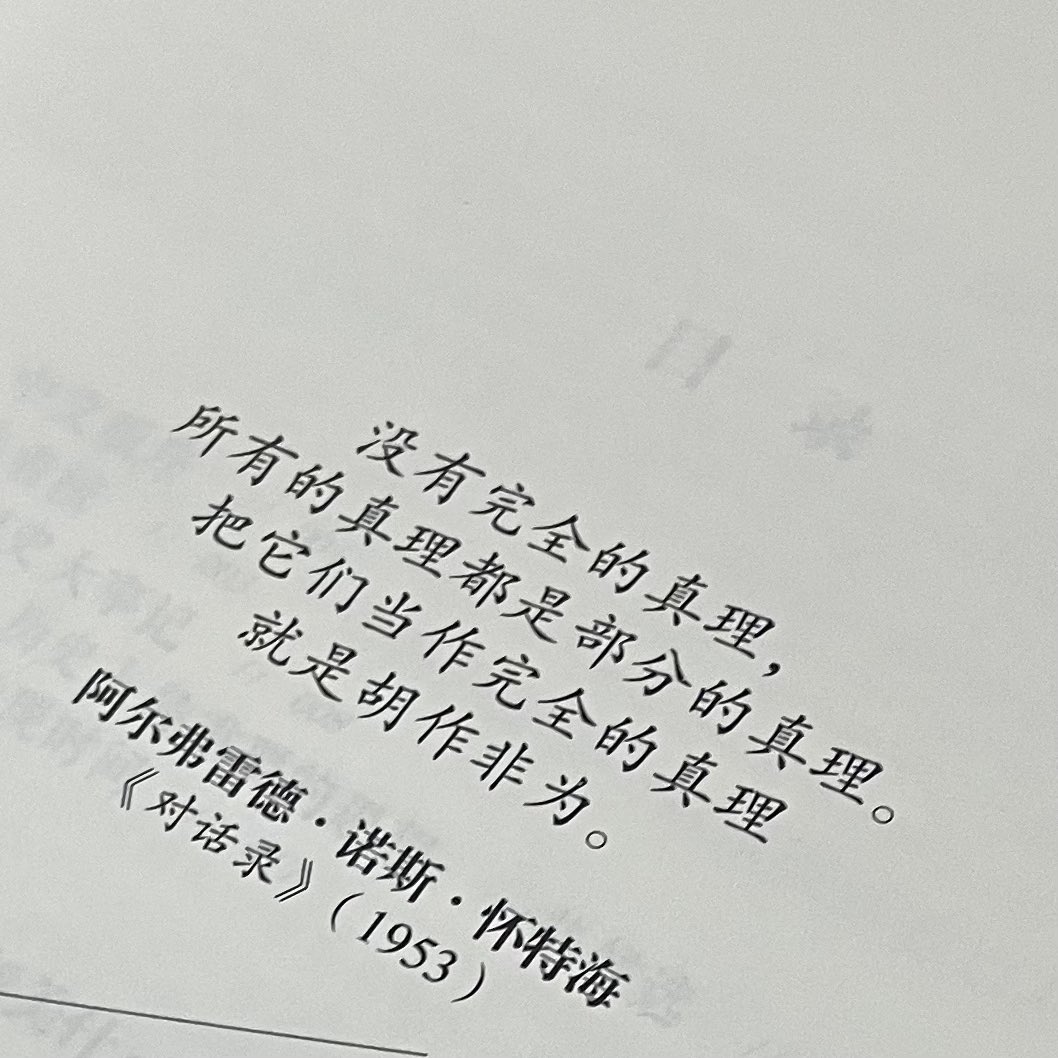 没有完全的真理，
所有的真理都是部分的真理。
把它们当作完全的真理
就是胡作非为。
阿尔弗雷德·诺斯·怀特海
《对话录》（1953）